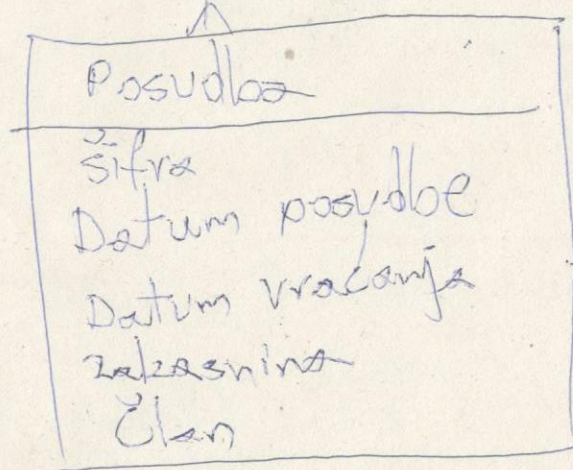 Posudba
šifra
Datum posudbe
Datum vraćanja
zakasnina
Član